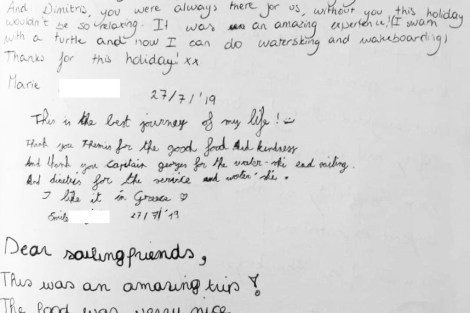 And Dimitris, you were always there for us, without you this holiday
wouldn't be so relaxing. It was an amazing experience! (I swam
with a turtle and now I can do waterskiing and wakeboarding)
Thanks for this holiday! xx
Marie
27/7/'19
This is the best journey of my life! :)
Thank you Themis for the good food And kindness
And thank you captain for the water-ski and sailing.
And dimitris for the service and water-ski.
I like it in Greece ♡
Emile 27/7/'19
Dear sailingfriends,
This was an amazing trip!
The food was very nice